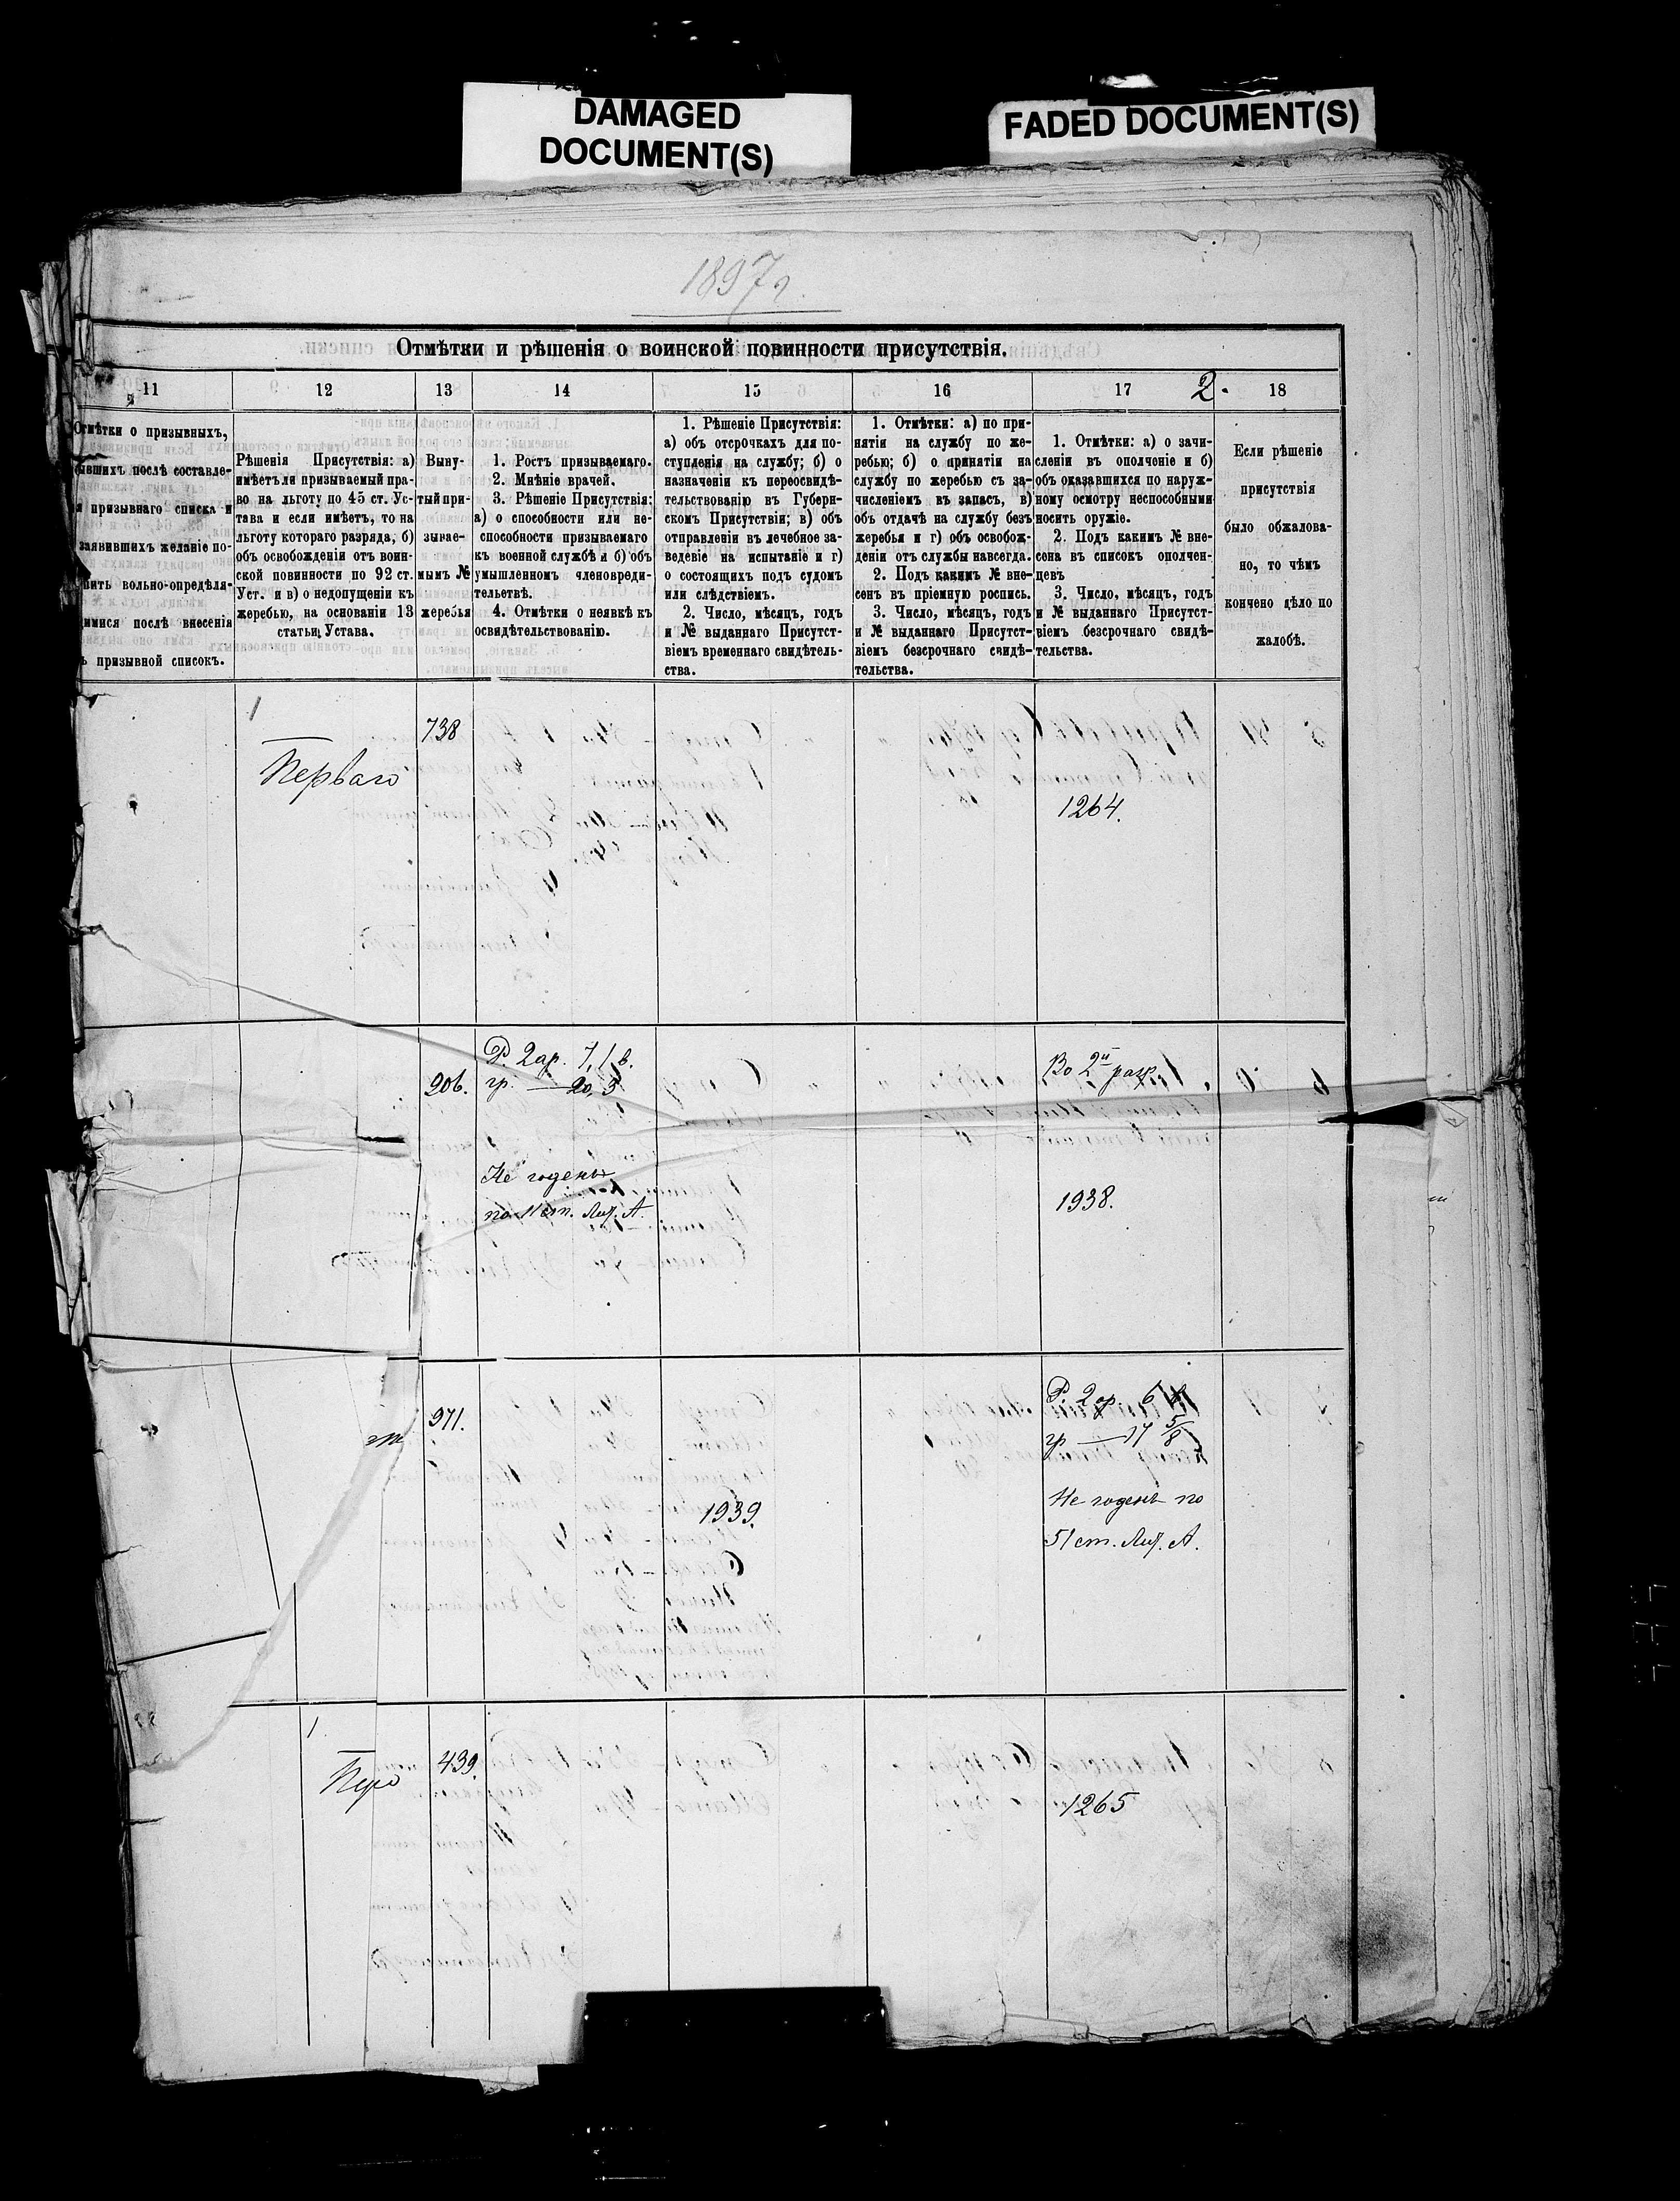 DAMAGED
DOCUMENT(S)
FADED DOCUMENT(S)
1897 г.
Отмѣтки и рѣшенія о воинской повинности присутствія.
11
12
13
14
15
16
17
2.
18
Отмѣтки о призывныхъ,
ывшихъ послѣ составле-
я призывнаго списка и
заявившихъ желаніе по-
пить вольно-опредѣля-
имися послѣ внесенія
ъ призывной списокъ.
Рѣшенія Присутствія: а)
имѣетъ ли призываемый пра-
во на льготу по 45 ст. Ус-
тава и если имѣетъ, то на
льготу котораго разряда; б)
объ освобожденіи отъ воин-
ской повинности по 92 ст.
Уст. и в) о недопущеніи къ
жеребью, на основаніи 13
статьи Устава.
Выну-
тый при-
зывае-
мымъ №
жеребья
1. Ростъ призываемаго.
2. Мнѣніе врачей.
3. Рѣшеніе Присутствія:
а) о способности или не-
способности призываемаго
къ военной службѣ и б) объ
умышленномъ членовреди-
тельствѣ.
4. Отмѣтки о неявкѣ къ
освидѣтельствованію.
1. Рѣшеніе Присутствія:
а) объ отсрочкахъ для по-
ступленія на службу; б) о
назначеніи къ переосвидѣ-
тельствованію въ Губерн-
скомъ Присутствіи; в) объ
отправленіи въ лечебное за-
веденіе на испытаніе и г)
о состоящихъ подъ судомъ
или слѣдствіемъ.
2. Число, мѣсяцъ, годъ
и № выданнаго Присутст-
віемъ временнаго свидѣтель-
ства.
1. Отмѣтки: а) по при-
нятіи на службу по же-
ребью; б) о принятіи на
службу по жеребью съ за-
численіемъ въ запасъ, в)
объ отдачѣ на службу безъ
жеребья и г) объ освобож-
деніи отъ службы навсегда.
2. Подъ какимъ № вне-
сенъ въ пріемную роспись.
3. Число, мѣсяцъ, годъ
и № выданнаго Присутст-
віемъ безсрочнаго свидѣ-
тельства.
1. Отмѣтки: а) о зачи-
сленіи въ ополченіе и б)
объ оказавшихся по наруж-
ному осмотру неспособными
носить оружіе.
2. Подъ какимъ № вне-
сена въ списокъ ополчен-
цевъ
3. Число, мѣсяцъ, годъ
и № выданнаго Присутст-
віемъ безсрочнаго свидѣ-
тельства.
Если рѣшеніе
присутствія
было обжалова-
но, то чѣмъ
кончено дѣло по
жалобѣ.
1
Перваго
738
1264.
906.
Р. 2 ар. 7,1 в.
гр. — 20,3
Не годенъ
по 11 ст. Лит. А.
Во 2й разр.
1938.
971.
1939.
Р. 2 ар. 6 в
гр — 17 5/8
Не годенъ по
51 ст. Лит. А.
1
439.
1265